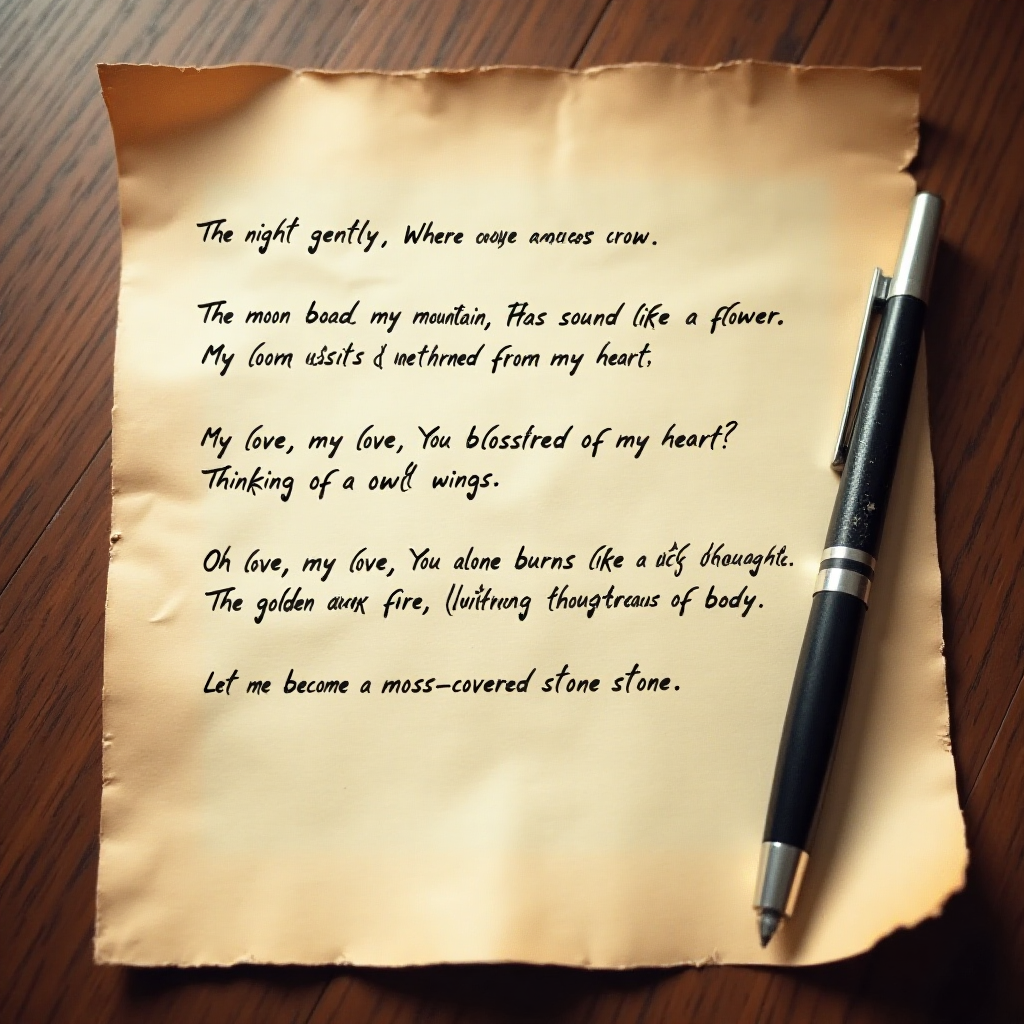 The night gently, Where crow.
The moon boad my mountain, Has sound like a flower.
My loom from my heart,
My love, my love, You of my heart?
Thinking of a owl wings.
Oh love, my love, You alone burns like a
The golden fire, of body.
Let me become a moss-covered stone stone.